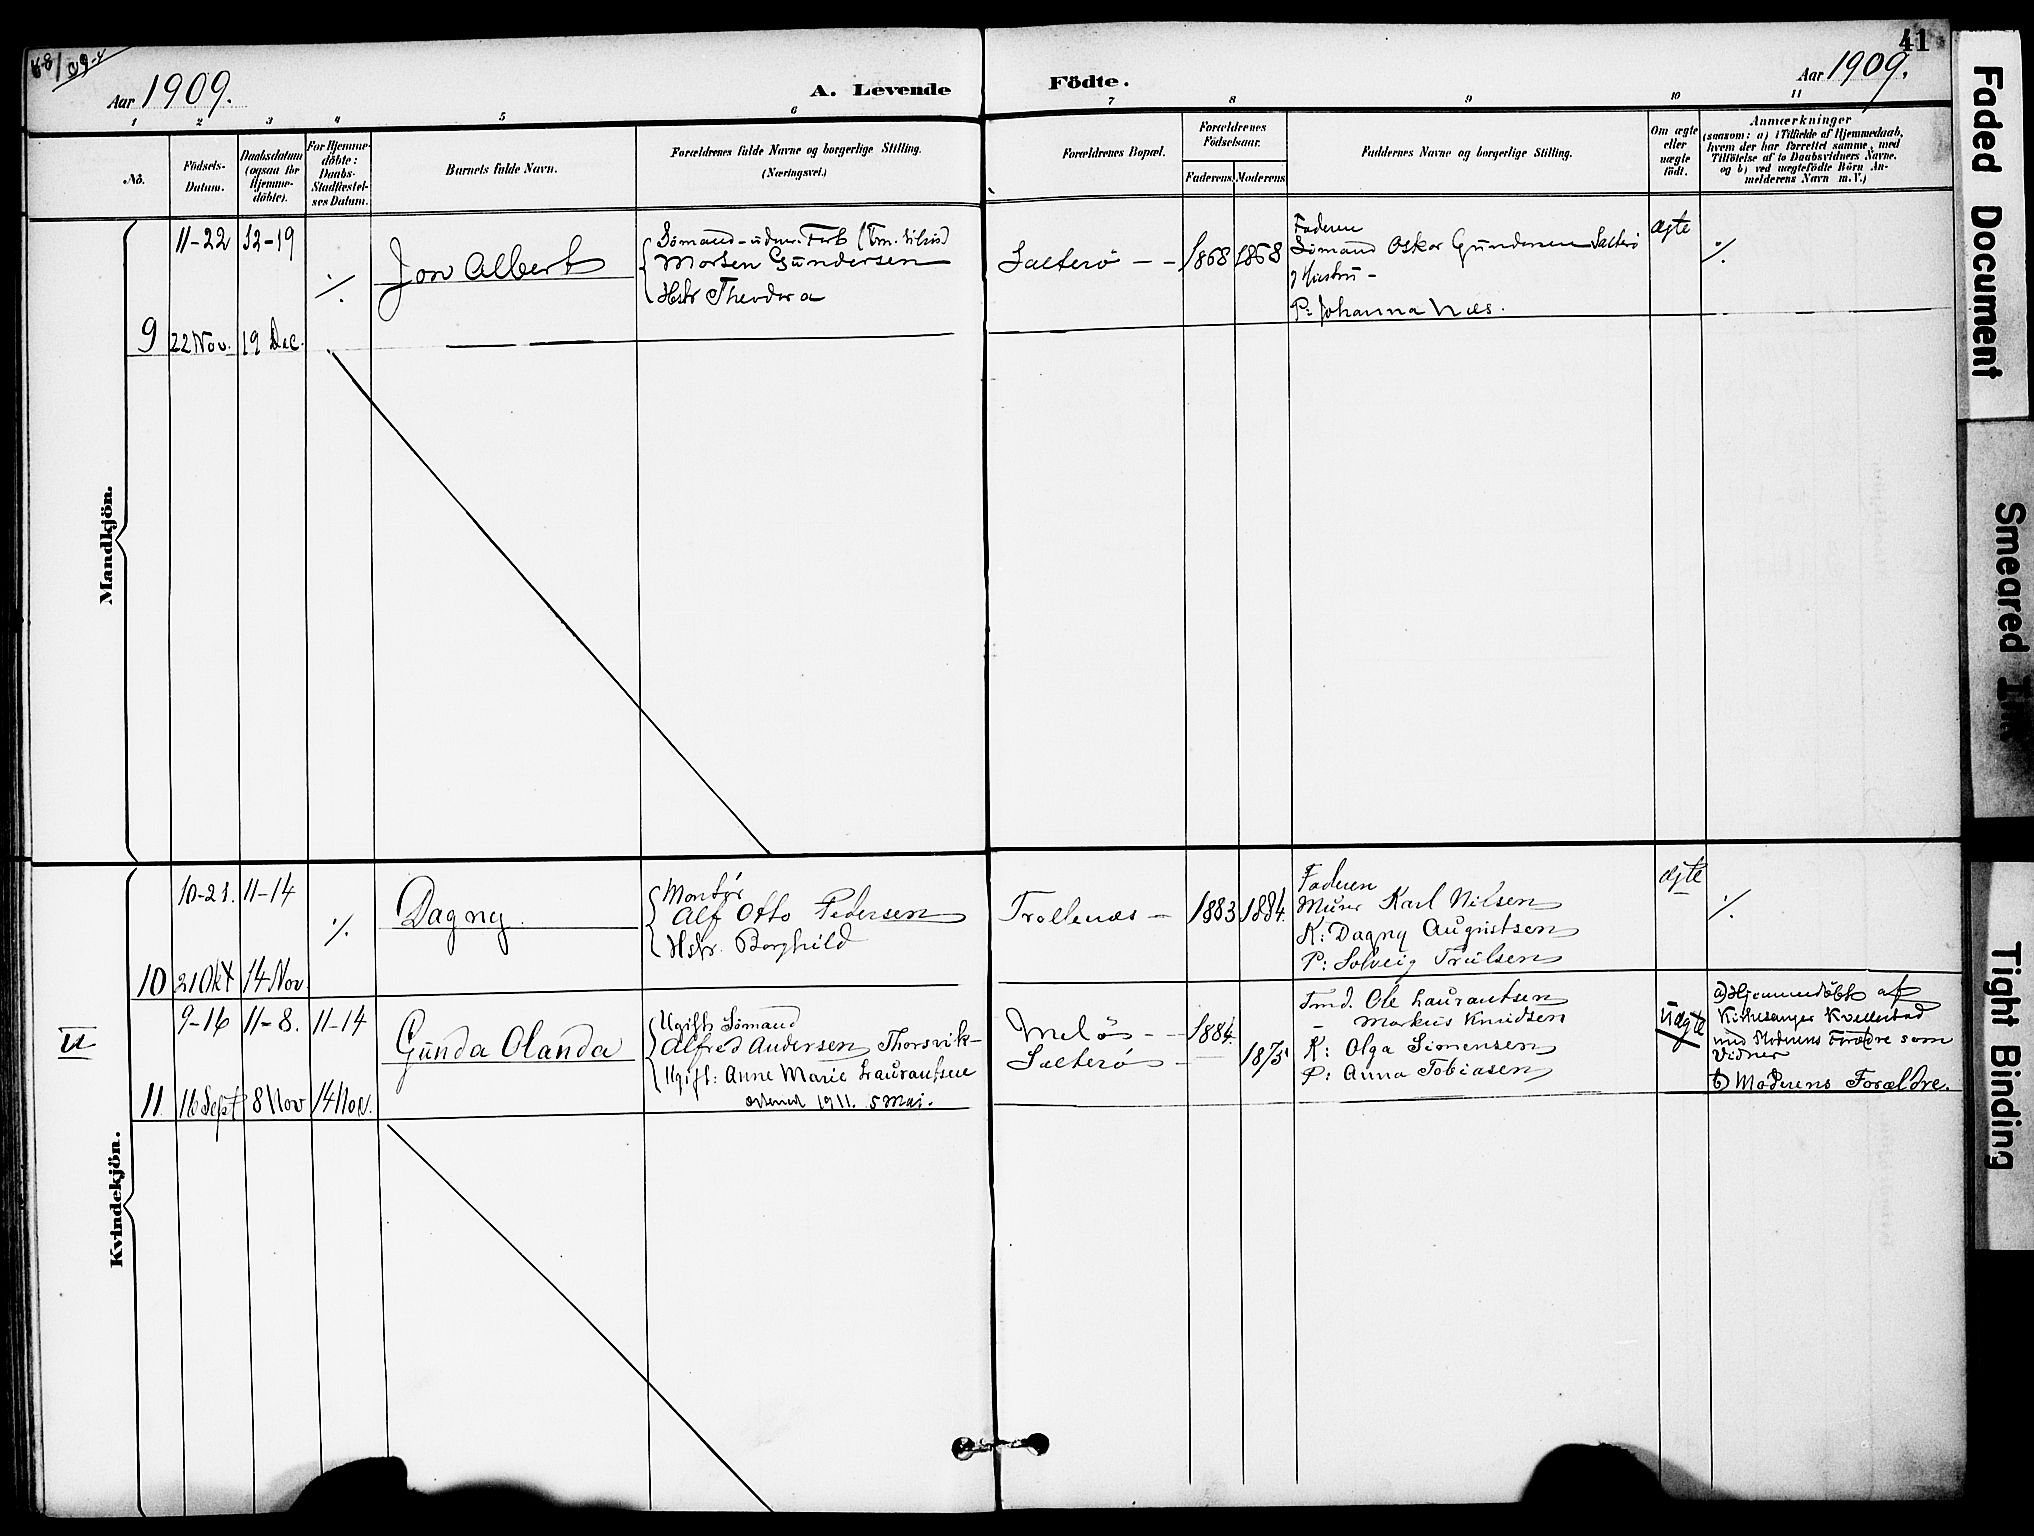 68/09-4
41
Aar 1909.
A. Levende
Födte.
Aar 1909.
1 2 3 4 5 6 7 8 9 10 11
No.
Födsels-
Datum.
Daabsdatum
(ogsaa for
Hjemme-
döbte).
For Hjemme-
döbte:
Daabs-
Stadfæstel-
ses Datum.
Barnets fulde Navn.
Forældrenes fulde Navne og borgerlige Stilling.
(Næringsvei.)
Forældrenes Bopæl.
Forældrenes
Födselsaar.
Faderens. Moderens.
Faddernes Navne og borgerlige Stilling.
Om ægte
eller
uægte
födt.
Anmærkninger
(saasom: a) i Tilfælde af Hjemmedaab,
hvem der har forrettet samme, med
Tilföielse af to Daabsvidners Navne.
og b) ved uægtefödte Börn An-
melderens Navn m. V.)
Mandkjön.
11-22 12-19
9 22 Nov. 19 Dec.
./.
Jon Albert
Sömand
Morten Gundersen
Hstr Theodora
Salterö - -
1868 1868
Faderen
Sömand Oskar Gundersen Salterö
Hustru -
P: Johanna Næs.
ægte
./.
Kvindekjön.
10-21. 11-14
10 21 Okt 14 Nov.
./.
Dagny.
Montör
Alf Otto Pedersen
Hstr. Borghild
Trollenæs -
1883 1884.
Faderen
Murer Karl Nilsen
K: Dagny Augustsen
P: Solveig Trulsen
ægte
./.
U
9-16 11-8. 11-14
11. 16 Sept 8 Nov 14 Nov.
Gunda Olanda
Ugift: Sömand
Alfred Andersen Thorsvik-
Ugift: Anne Marie Laurantsen
1911. 5 Mai.
Melös - -
Salterö -
1884.
1875
Fmd. Ole Laurantsen
- Markus Knudsen
K: Olga Simensen
P: Anna Tobiasen
Uægte
a) Hjemmedöbt af
Kirkesanger Kvellestad
med Moderens Forældre som
Vidner
b) Moderens Forældre.
Faded Document
Smeared Ink
Tight Binding